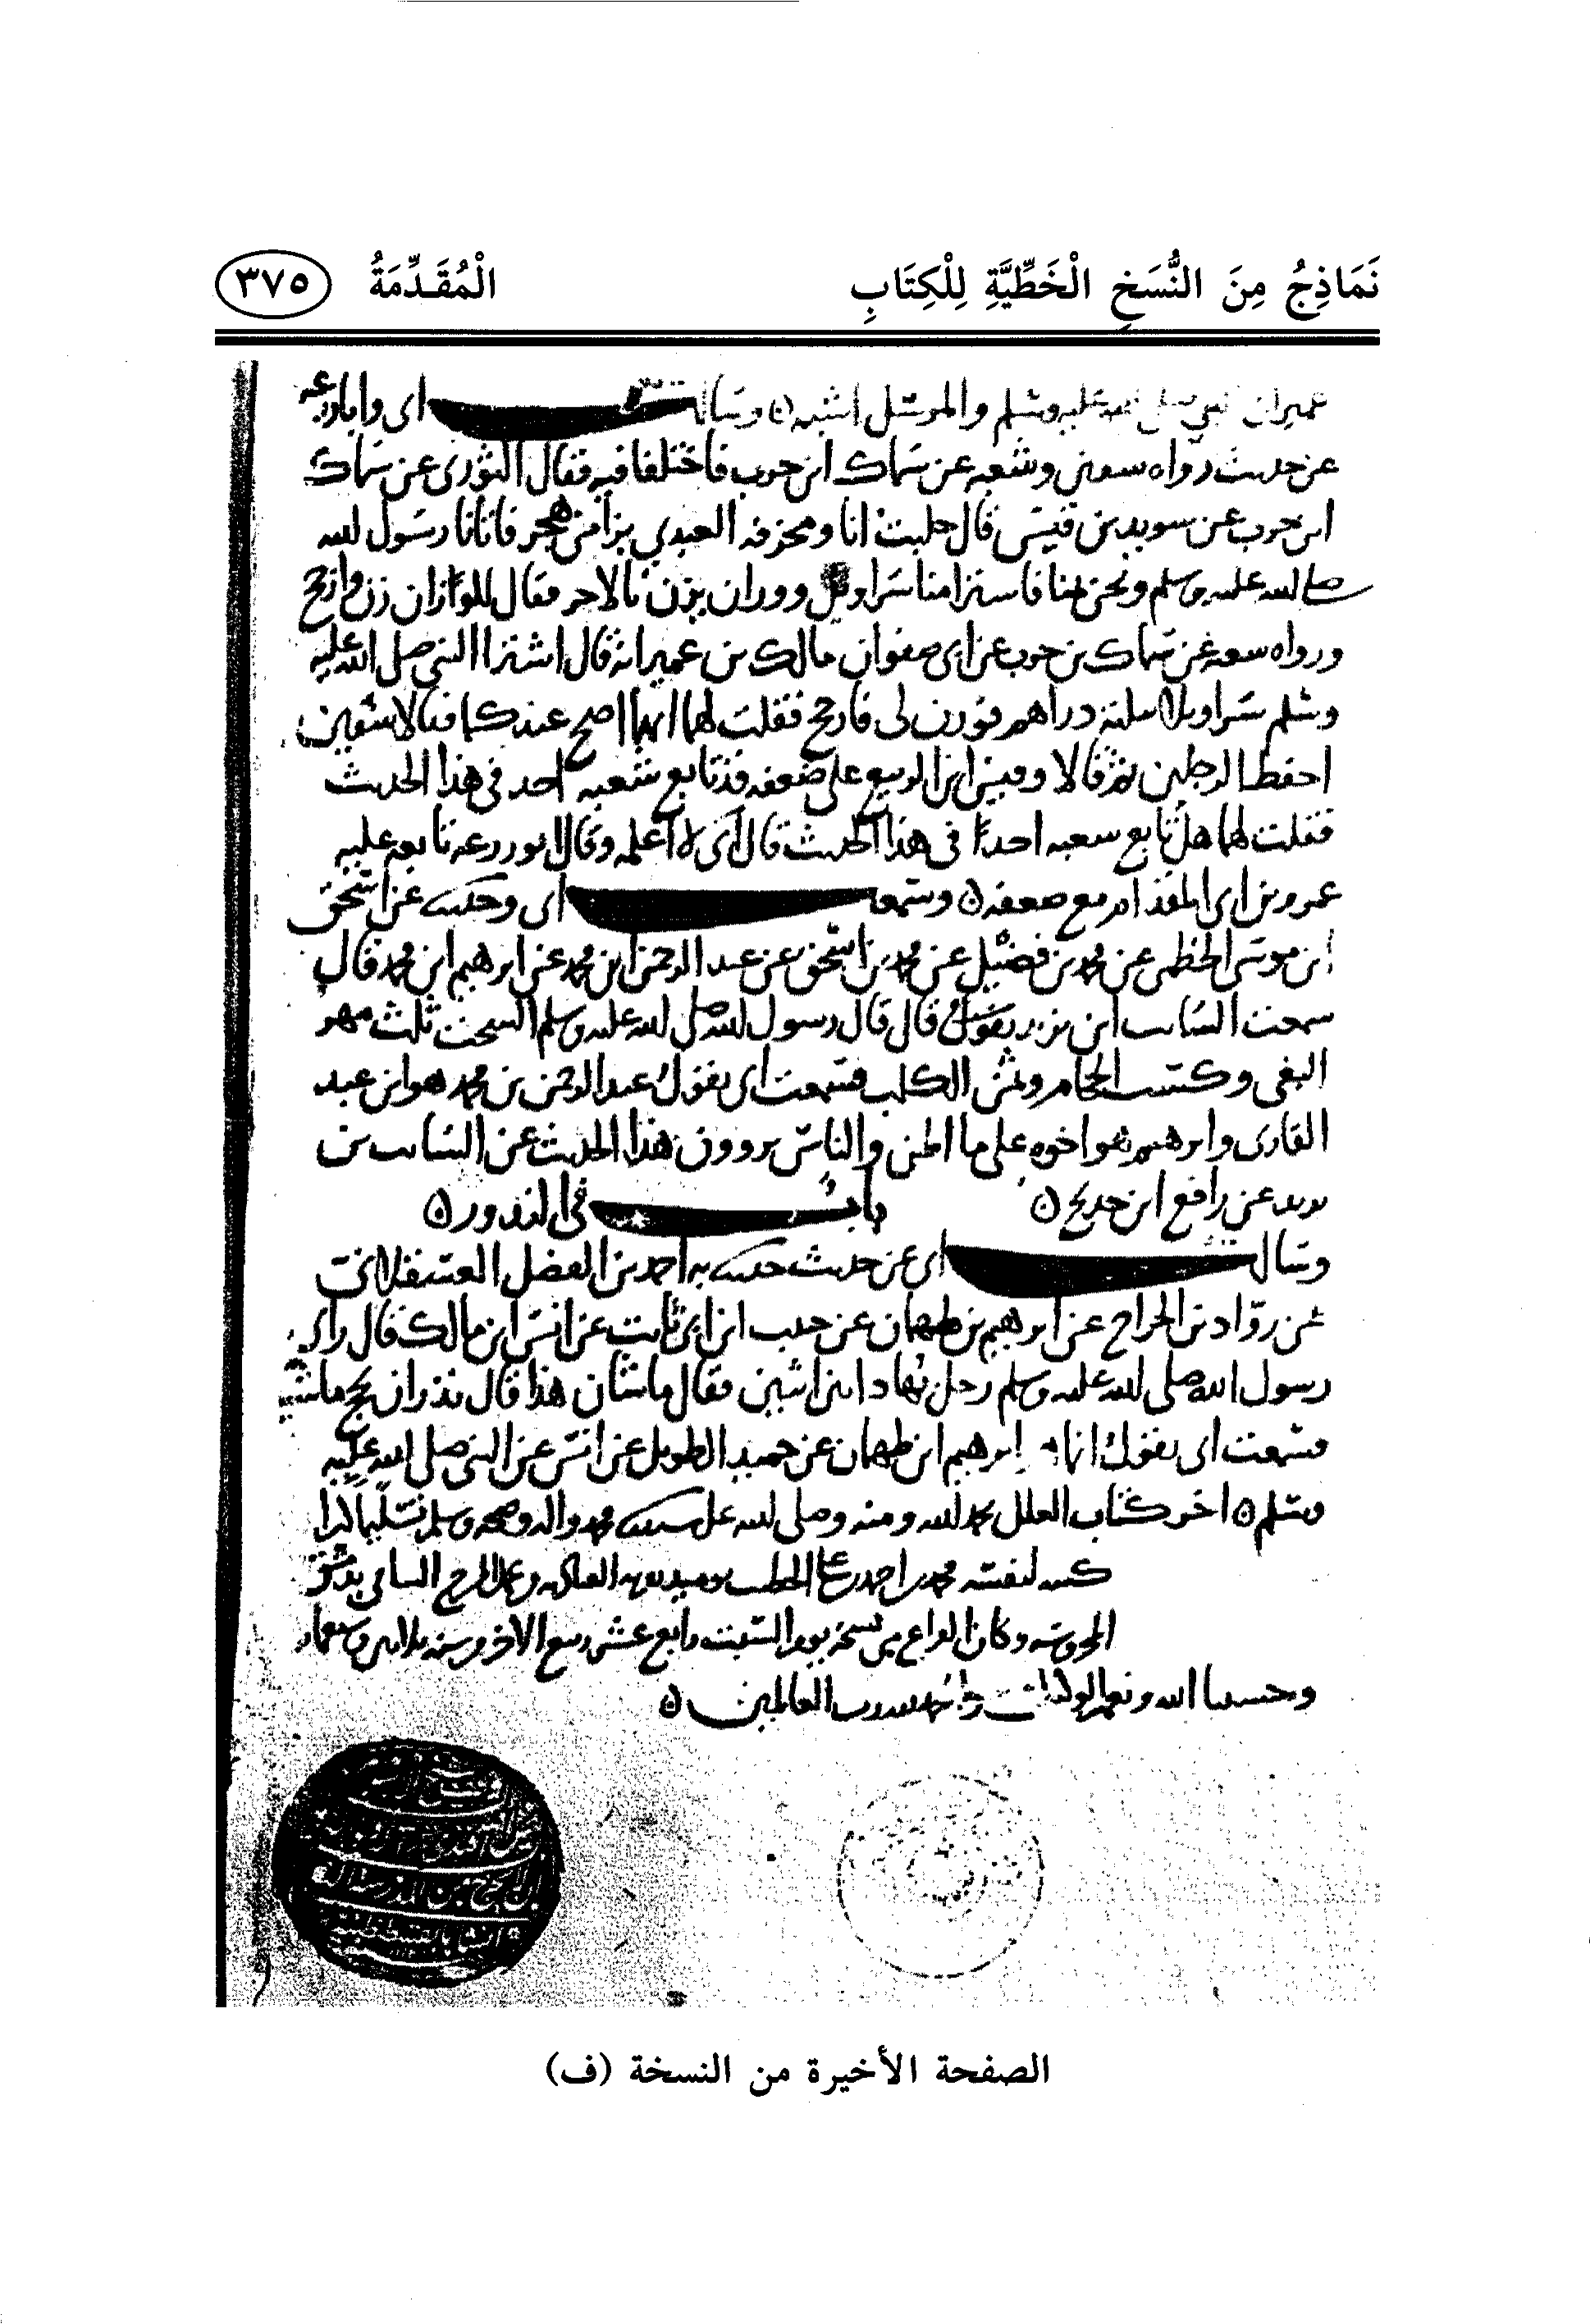 نَمَاذِجُ مِنَ النُّسَخِ الْخَطِّيَّةِ لِلْكِتَابِ
الْمُقَدِّمَةُ ٣٧٥
عليه وسلم والمرسل اشبه وسالت ابي وابا زرعه
عن حديث رواه سفين وشعبه عن سماك ابن حرب فاختلفا فيه فقال الثوري عن سماك
ابن حرب عن سويد بن قيس قال جلبت انا ومخرفه العبدي بزا من هجر فاتانا رسول الله
صلى الله عليه وسلم ونحن بمنا فاشترا منا سراويل ووزان يزن بالاجر فقال للوازان زن وارجح
ورواه شعبه عن سماك بن حرب عن ابي صفوان مالك بن عمير انه قال اشترا النبي صلى الله عليه
وسلم سراويلا دراهم فوزن لي فارجح فقلت لهما ايهما اصح عندكما فقالا سفين
احفظ الرجلين ثم قالا وقيس ابن الربيع على ضعفه قد تابع شعبه احد في هذا الحديث
فقلت لهما هل تابع شعبه احدا في هذا الحديث قال ابي لا اعلمه وقال ابو زرعه تابعه عليه
عمرو بن ابي المقدام مع ضعفه وسمعت ابي وحدثنا عن اسحق
ابن موسى الخطمي عن محمد بن فضيل عن محمد بن اسحق عن عبد الرحمن ابن محمد عن ابرهيم ابن محمد قال
سمعت السايب ابن يزيد يقول قال قال رسول الله صلى الله عليه وسلم السحت ثلث مهر
البغي وكسب الحجام وثمن الكلب فسمعت ابي يقول عبد الرحمن بن محمد هو ابن عبد
القاري وابرهيم هو اخوه على ما اظن والناس يروون هذا الحديث عن السايب بن
يزيد عن رافع ابن خديج باب في النذور
وسالت ابي عن حديث حدثنا به احمد بن الفضل العسقلاني
عن رواد بن الجراح عن ابرهيم بن طهمان عن حبيب ابن ابي ثابت عن انس ابن مالك قال راى
رسول الله صلى الله عليه وسلم رجل يهادا بين اثنين فقال ما شان هذا قال نذر ان يحج ماشيا
فسمعت ابي يقول ابرهيم ابن طهمان عن حميد الطويل عن انس عن النبي صلى الله عليه
وسلم اخر كتاب العلل بحمد الله ومنه وصلى الله على سيدنا محمد واله وصحبه وسلم تسليما كثيرا
كتبه لنفسه محمد بن احمد الخطيب
المحروسه وكان الفراغ من نسخه يوم السبت رابع عشر ربيع الاخر سنه
وحسبنا الله ونعم الوكيل والحمد لله رب العالمين
الصفحة الأخيرة من النسخة (ف)